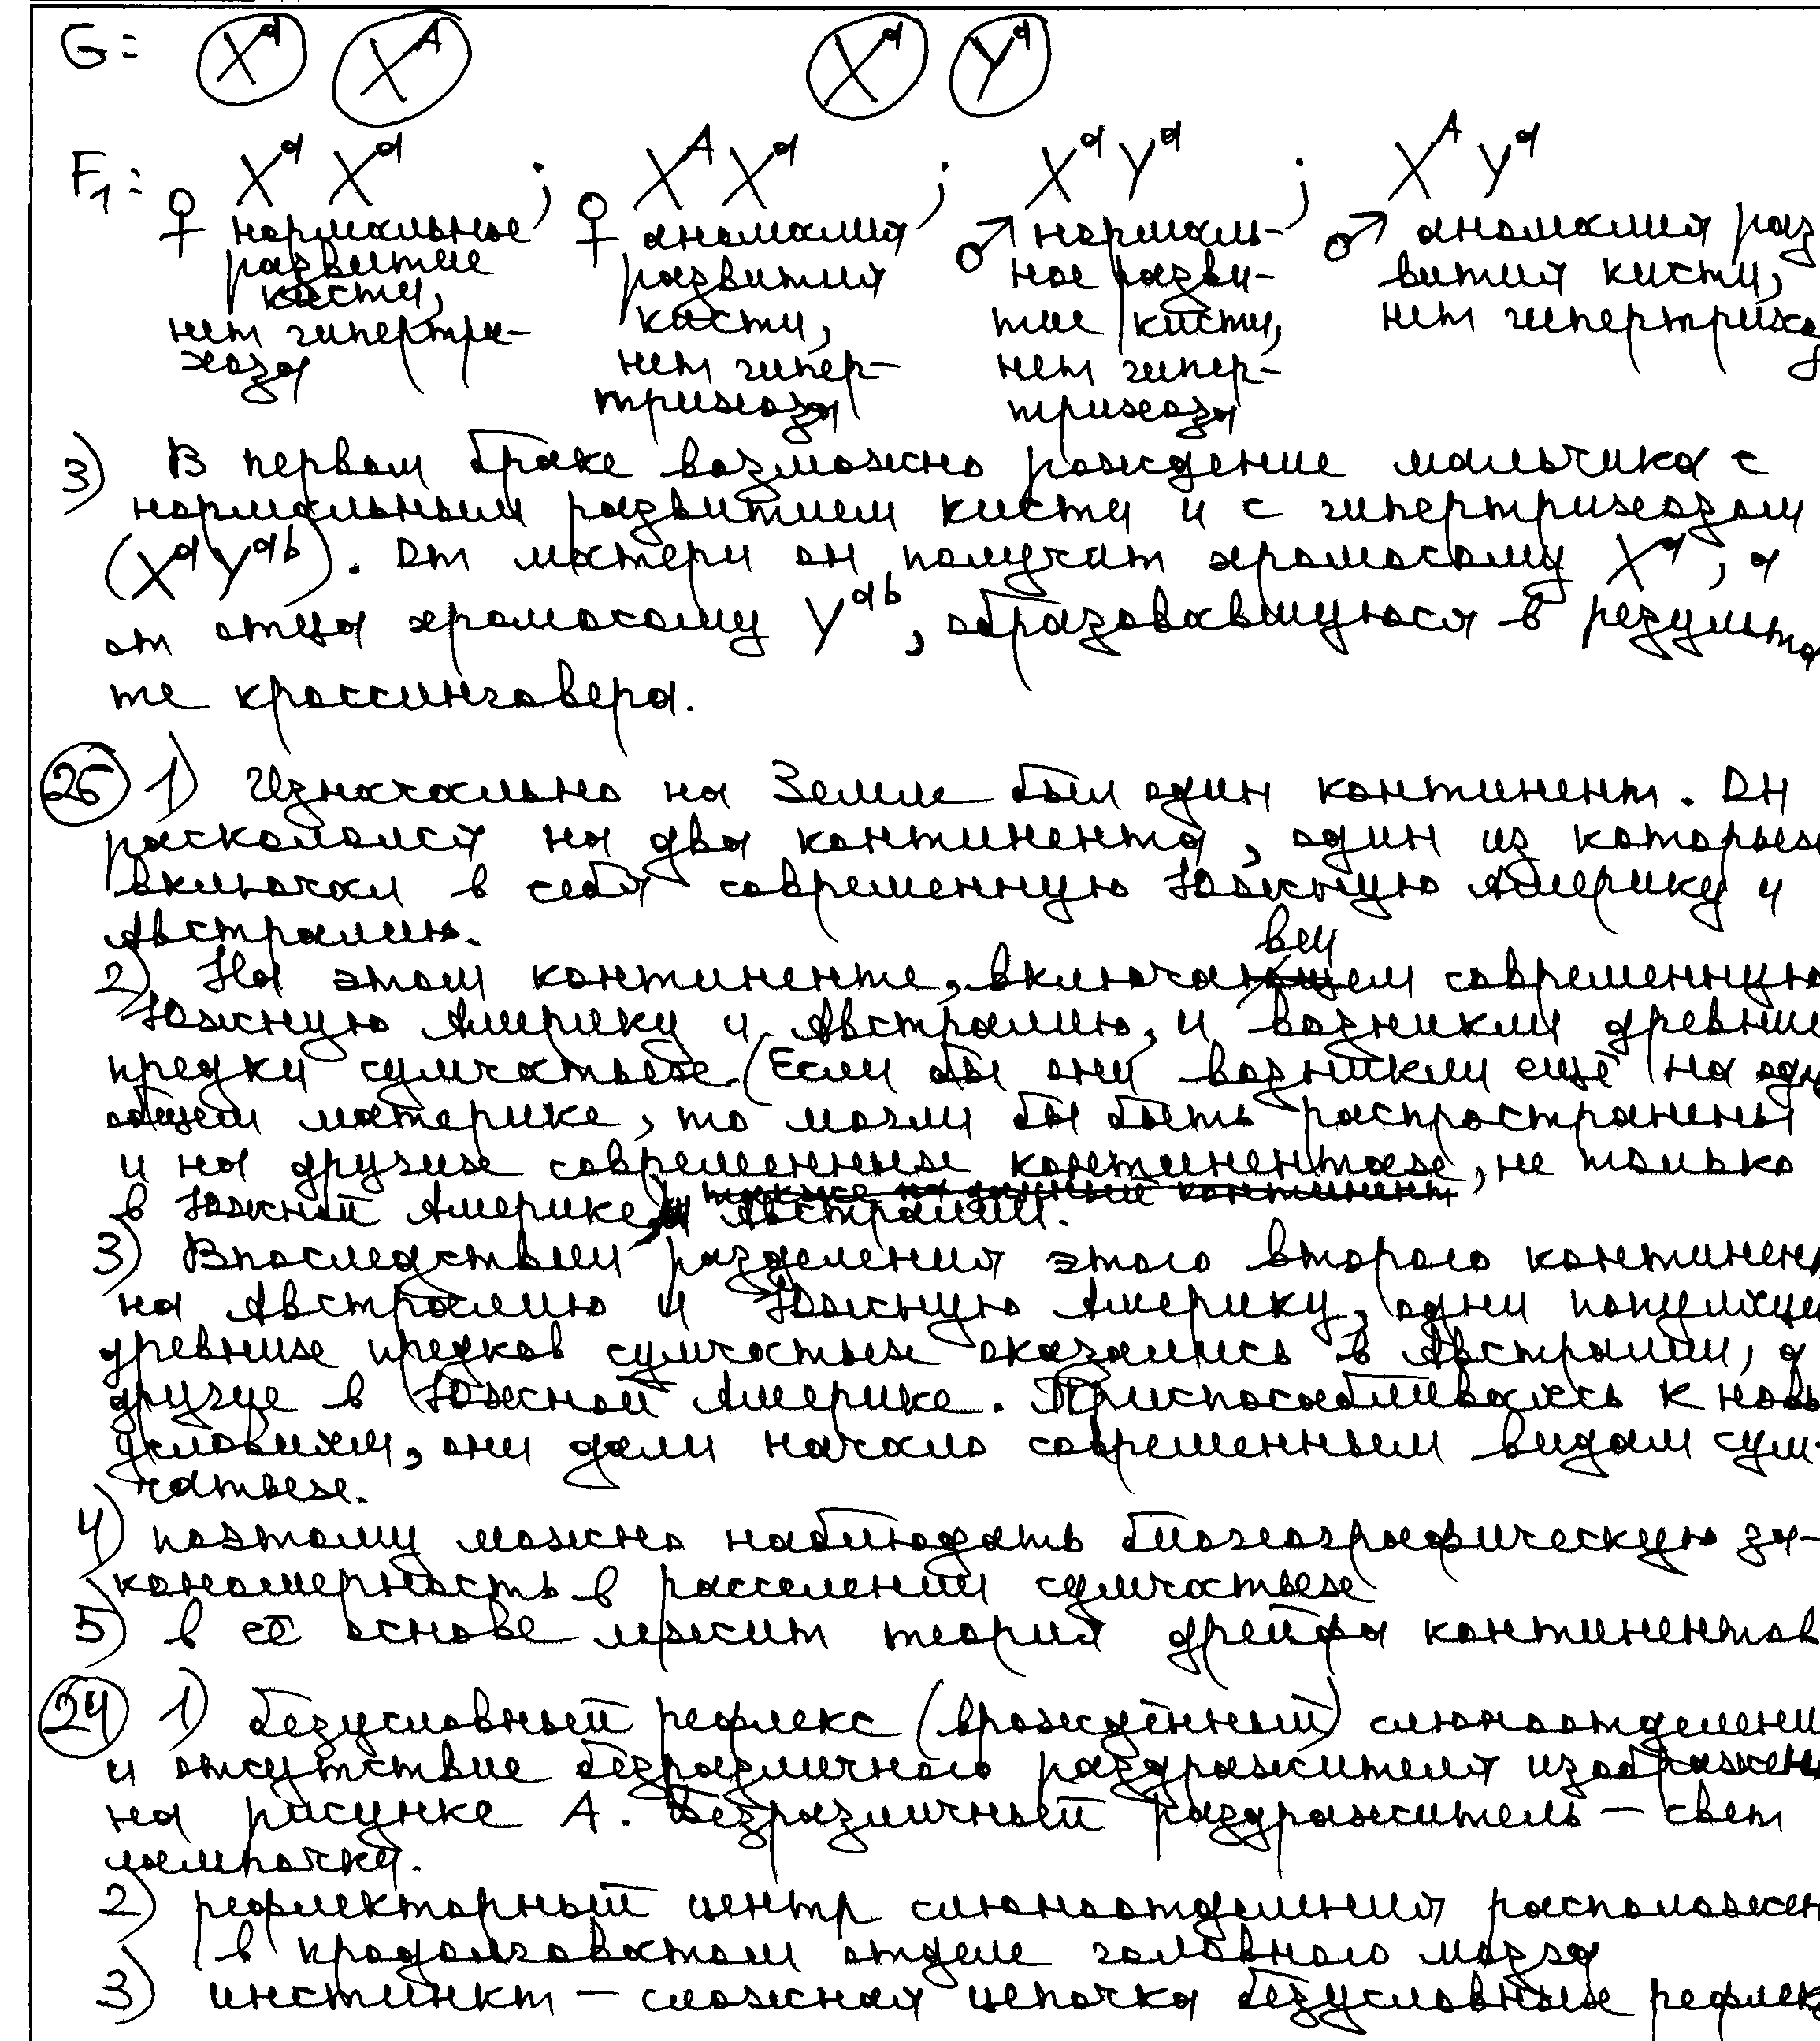 G = X^a X^A X^a Y^a
F1: ♀ X^a X^a ; ♀ X^A X^a ; ♂ X^a Y^a ; ♂ X^A Y^a
нормальное аномалия нормаль- аномалия раз
развитие развития ное разви- вития кисти,
кисти, кисти, тие кисти, нет гипертрихо
нет гипертри- нет гипер- нет гипер- з
хоза трихоза трихоза
3) В первом браке возможно рождение мальчика с
нормальным развитием кисти и с гипертрихозом
(X^a Y^ab). От матери он получит хромосому X^a, а
от отца хромосому Y^ab, образовавшуюся в результа
те кроссинговера.
25 1) Изначально на Земле был один континент. Он
раскололся на два континента, один из которых
включал в себя современную Южную Америку и
Австралию.
2) На этом континенте, включавшем современную
Южную Америку и Австралию, и возникли древние
предки сумчатых. (Если бы они возникли ещё на одн
общем материке, то могли бы быть распространены
и на других современных континентах, не только
в Южной Америке и Австралии.
3) Впоследствии разделения этого второго континен
на Австралию и Южную Америку, одни популяци
древних предков сумчатых оказались в Австралии, а
другие в Южной Америке. Приспосабливаясь к новы
условиям, они дали начало современным видам сум-
чатых.
4) поэтому можно наблюдать биогеографическую за-
кономерность в расселении сумчатых
5) в её основе лежит теория дрейфа континентов
24 1) безусловный рефлекс (врождённый) слюноотделени
и отсутствие безразличного раздражителя изображен
на рисунке А. Безразличный раздражитель – свет
лампочки.
2) рефлекторный центр слюноотделения расположен
в продолговатом отделе головного мозга
3) инстинкт – сложная цепочка безусловных рефлек